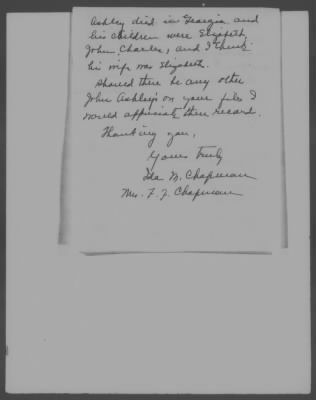 Ashley died in Georgia and
his children were Elizabeth
John, Charles, and I think
his wife was Elizabeth.
Should there be any other
John Ashley's on your files I
would appreciate their record.
Thanking you,
Yours truly
Ida M. Chapman
Mrs. F. F. Chapman